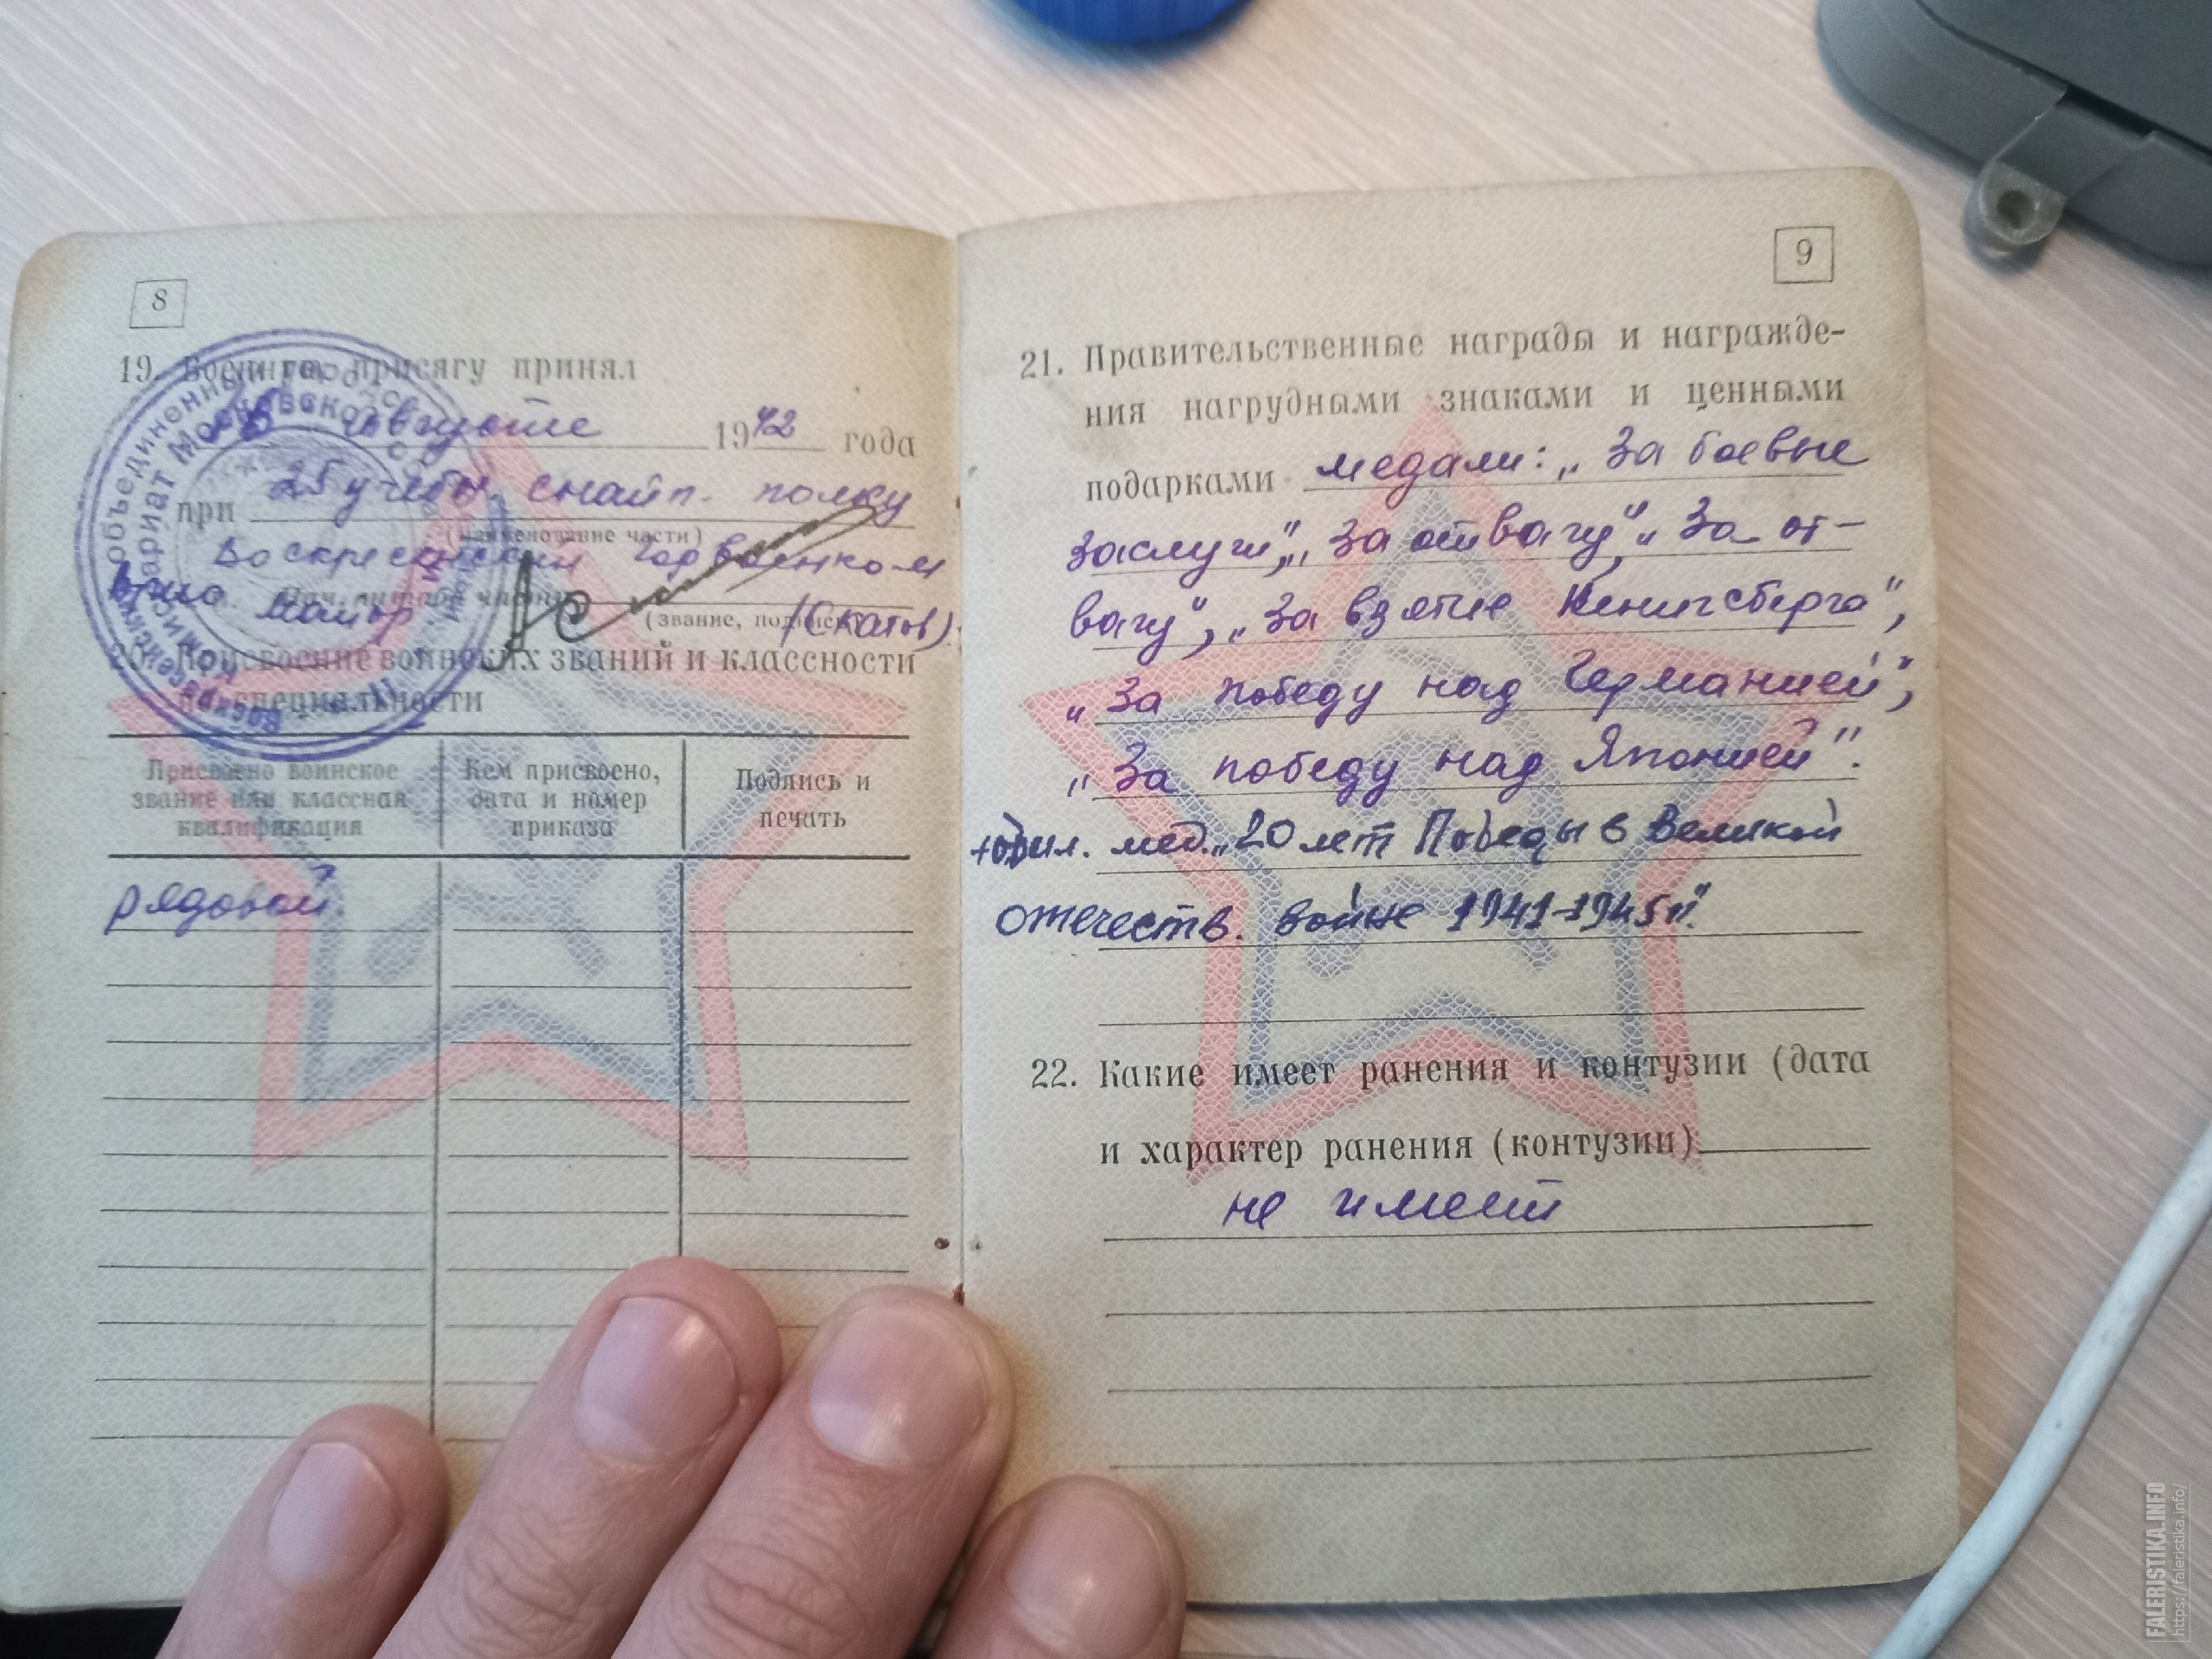 8
19. Военную присягу принял
В августе 1942 года
при 25 учебн. снайп. полку
(наименование части)
Воскресенский горвоенком
майор (Скатов).
(звание, подпись)
20. Присвоение воинских званий и классности
по специальности
Присвоено воинское звание или классная квалификация
Кем присвоено, дата и номер приказа
Подпись и печать
рядовой
9
21. Правительственные награды и награжде-
ния нагрудными знаками и ценными
подарками медали: „За боевые
заслуги", „За отвагу", „За от-
вагу", „За взятие Кенигсберга",
„За победу над Германией",
„За победу над Японией".
юбил. мед. „20 лет Победы в Великой
отечеств. войне 1941-1945гг".
22. Какие имеет ранения и контузии (дата
и характер ранения (контузии)
не имеет
FALERISTIKA.INFO
https://faleristika.info/